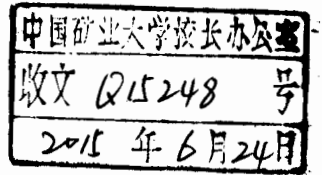 中国矿业大学校长办公室
收文 Q15248 号
2015 年 6 月 24 日